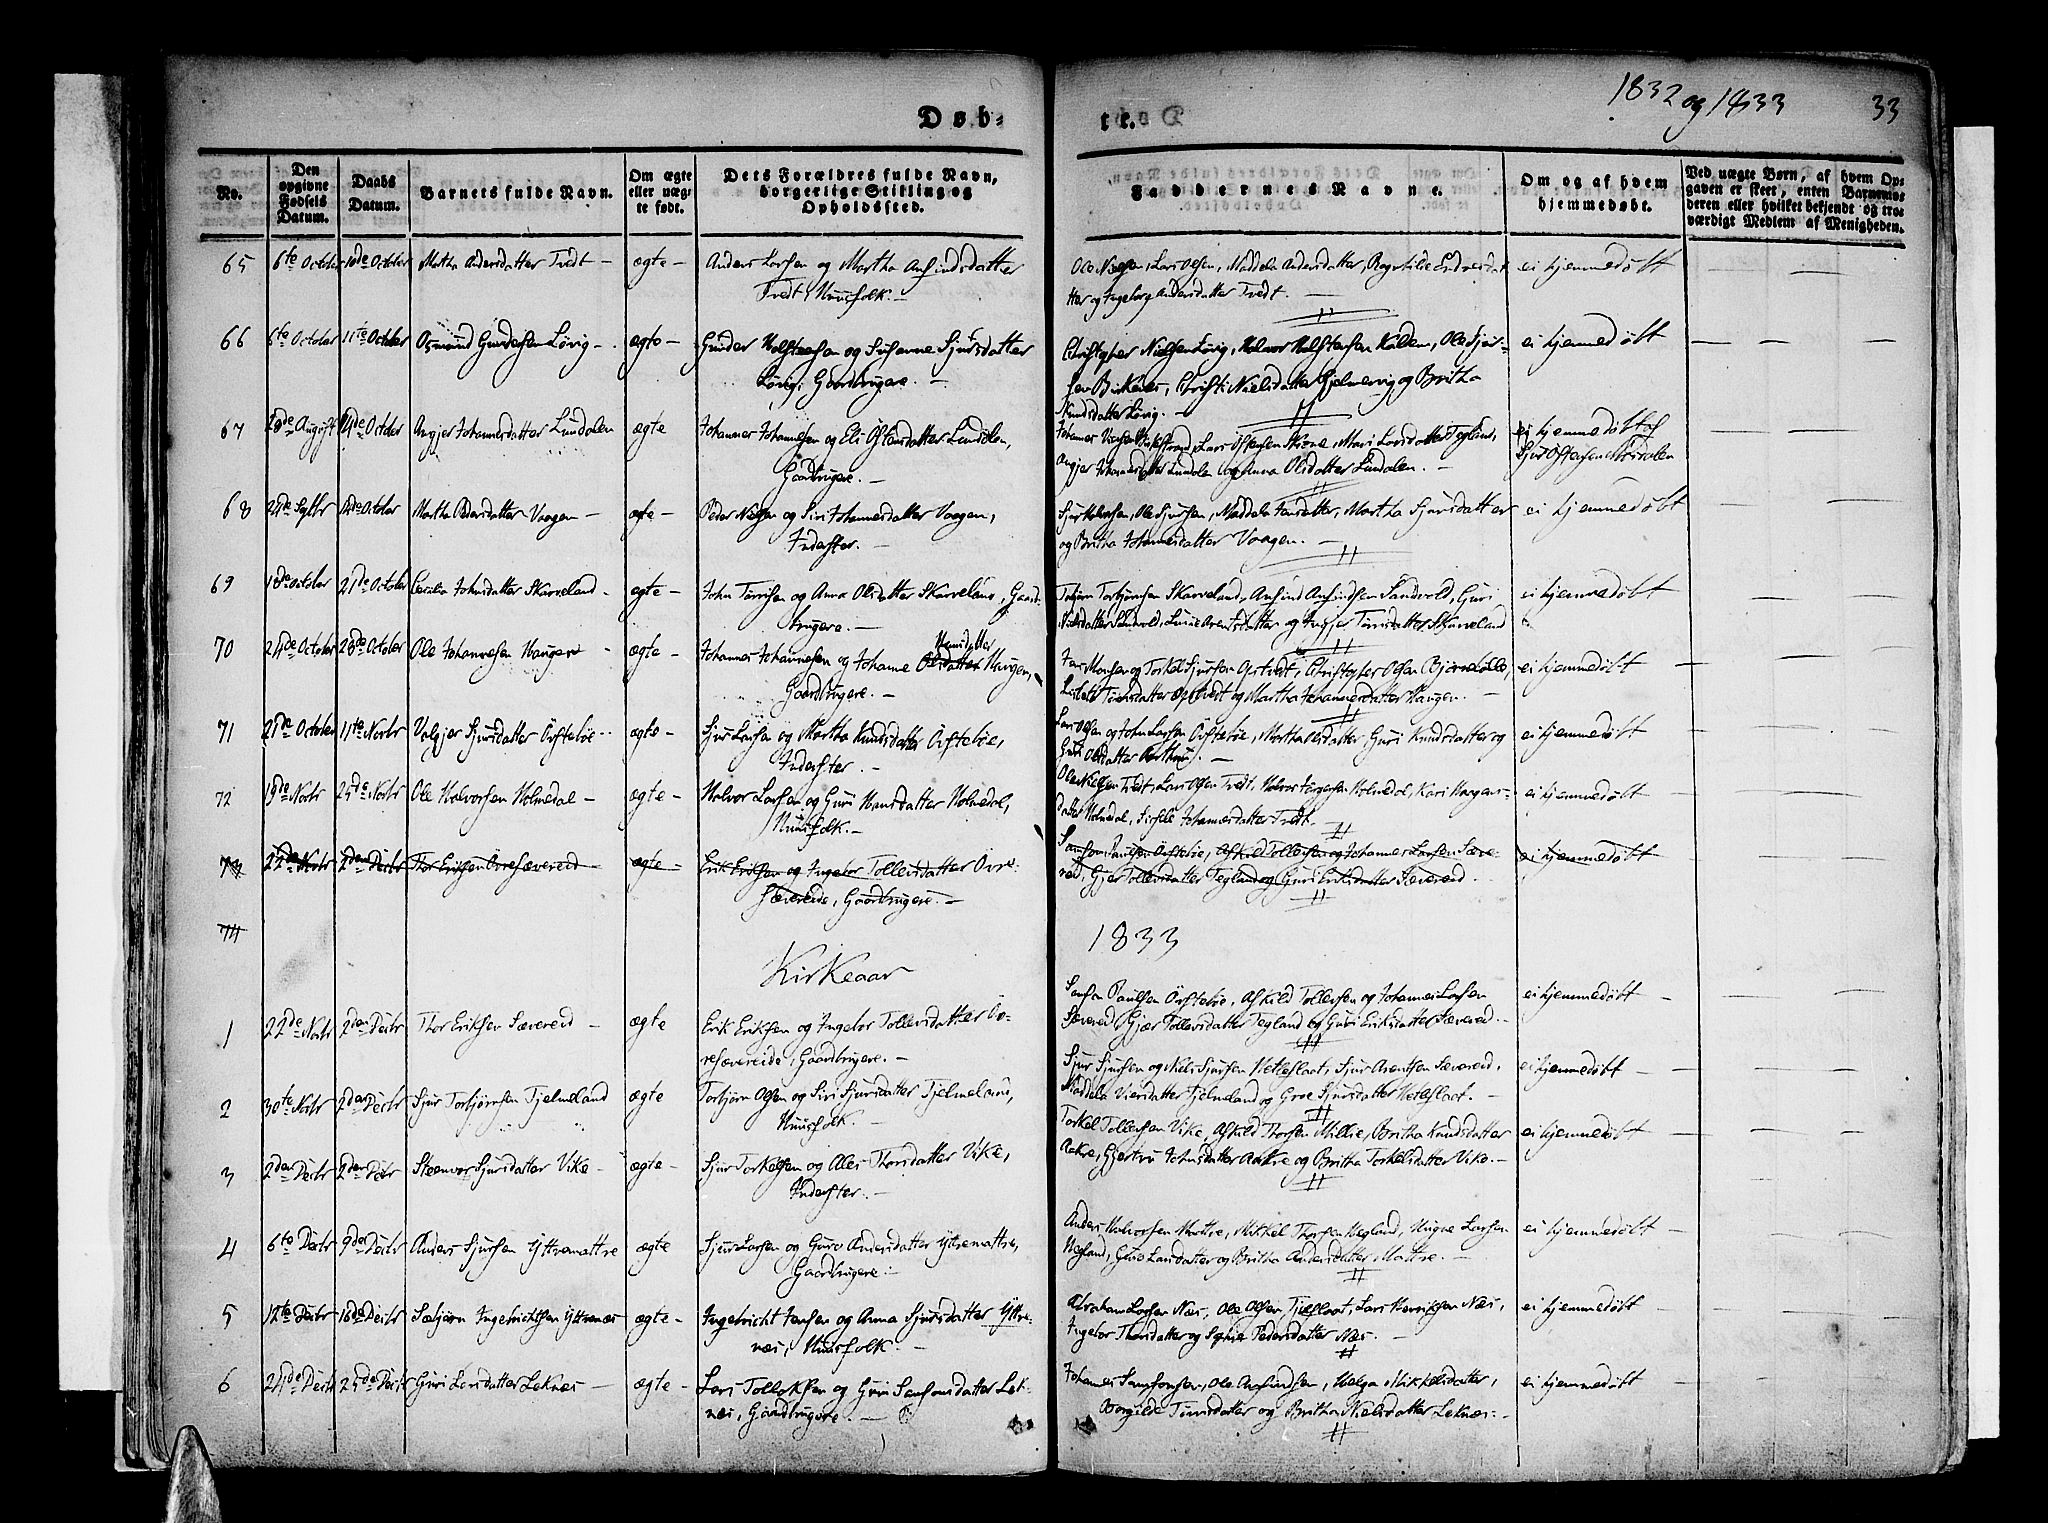 1832 og 1833 33
Døb=
te.
No.
Den
opgivne
Fødsels
Datum.
Daabs
Datum.
Barnets fulde Navn.
Om ægte
eller uæg-
te født.
Dets Forældres fulde Navn,
borgerlige Stilling og
Opholdssted.
Faddernes Navne.
Om og af hvem
hjemmedøbt.
Ved uægte Børn, af hvem Op-
gaven er skeet, enten Barnemo-
deren eller hvilket bekjendt og tro-
værdigt Medlem af Menigheden.
65 6te October October Martha Andersdatter Tvedt — ægte — Anders Larsen og Martha Anfindsdatter
Tvedt, Huusfolk. —
Ole Nielsen, Lars Olsen, Maddela Andersdatter, Ragnhilde Endresdat
ter og Ingeborg Andersdatter Tvedt. —
ei hjemmedøbt
66 6te October 11te October Osmund Gundersen Løvig — ægte — Gunder Holstensen og Susanne Sjursdatter
Løvig, Gaardbrugere. —
Christopher Nielsen Løvig, Halvor Holstensen, Ole Sjur-
sen Birkenes, Christi Nielsdatter og Britha
Knudsdatter Løvig. —
ei hjemmedøbt
67 28de August 14de October Johannesdatter Lundalen ægte Johannes Johannesen og Eli Ostensdatter Lundalen,
Gaardbrugere. —
Johannes, Lars Ostensen, Mari Larsdatter Tegland,
Johannesdatter og Anna Olsdatter Lundalen. —
hjemmedøbt af
Sjur Ostensen
68 24de Septbr 14de October Martha Pedersdatter Vaagen — ægte — Peder Nielsen og Siri Johannesdatter Vaagen,
Inderster. —
Sjur, Ole Sjursen, Maddela Jansdatter, Martha Sjursdatter
og Britha Johannesdatter Vaagen. —
ei hjemmedøbt
69 October 21de October Cecilia Johnsdatter Skarveland — ægte — John Tørrisen og Anna Olsdatter Skarveland, Gaard-
brugere. —
Torbjørn Torbjørnsen Skarveland, Anfind Anfindsen Sandvold, Guri
Nielsdatter Sandvold, og Tørrisdatter Skarveland
ei hjemmedøbt
70 24de October 28de October Ole Johannesen Haugen — ægte — Johannes Johannesen og Johanne Olsdatter Haugen,
Gaardbrugere. —
Monsen og Torkel Sjursen Opstvedt, Christopher Olsen,
Opstvedt og Martha Johannesdatter Haugen. —
ei hjemmedøbt
71 21de October 11te Novbr Valgjer Sjursdatter Øvstebøe — ægte — Sjur Larsen og Martha Knudsdatter Øvstebøe,
Inderster. —
Lars Olsen og John Larsen Øvstebøe, Martha Olsdatter, Guri Knudsdatter og
Olsdatter. —
ei hjemmedøbt
72 19de Novbr 25de Novbr Ole Halvorsen Holmedal — ægte — Halvor Larsen og Guri Hansdatter Holmedal,
Huusfolk. —
Ole Nielsen Tvedt, Lars Olsen Tvedt, Halvor Holmedal, Kari
datter Holmedal, Johannesdatter Tvedt. —
ei hjemmedøbt
73 22de Novbr 2den Decbr Thor Eriksen Øvresævereid — ægte — Erik Eriksen og Ingebor Tollevsdatter Øvre-
sævereide, Gaardbrugere. —
Samson Paulsen Øvstebøe, Askild Tollevsen og Johannes Larsen Sæve-
reid, Gjer Tollevsdatter Tegland og Guri Eriksdatter Sævereid. —
ei hjemmedøbt
74
Kirkeaar 1833
1 22de Novbr 2den Decbr Thor Eriksen Sævereid — ægte Erik Eriksen og Ingebor Tollevsdatter Øv-
resævereide, Gaardbrugere. —
Samson Paulsen Øvstebøe, Askild Tollevsen og Johannes Larsen
Sævereid, Gjær Tollevsdatter Tegland og Guri Eriksdatter Sævereid. —
ei hjemmedøbt
2 30te Novbr 2den Decbr Sjur Torbjørnsen Tjelmeland ægte Torbjørn Olsen og Siri Sjursdatter Tjelmeland,
Huusfolk. —
Sjur Sjursen og Nels Sjursen Hetleflaat, Sjur Arentsen Sævereid,
Maddela Tjelmeland og Groe Sjursdatter Hetleflaat. —
ei hjemmedøbt
3 2den Decbr 2den Decbr Steenvor Sjursdatter Vike — ægte — Sjur Torkelsen og Ales Thorsdatter Vike,
Inderster. —
Torkel Tollevsen Vike, Askild Thorsen Millie, Britha Knudsdatter
Aakre, Gjertru Johnsdatter Aakre og Britha Torkelsdatter Vike. —
ei hjemmedøbt
4 6te Decbr 9de Decbr Anders Sjursen Yttremattre ægte Sjur Larsen og Guro Andersdatter Yttremattre,
Gaardbrugere. —
Anders Halvorsen Mattre, Mikkel Thorsen Hegland, Larsen
Hegland, Larsdatter og Britha Andersdatter Mattre. —
ei hjemmedøbt
5 12te Decbr 16de Decbr Sæbjørn Ingebrichtsen Yttrenæs ægte — Ingebricht Jensen og Anna Sjursdatter Yttre-
næs, Huusfolk. —
Abraham Larsen Næs, Ole Olsen Tjelflaat, Lars Henriksen Næs,
Ingebor Thorsdatter og Pedersdatter Næs. —
ei hjemmedøbt
6 24de Decbr 25de Decbr Guri Larsdatter Leknæs — ægte — Lars Tollaksen og Guri Samsonsdatter Lek-
næs, Gaardbrugere. —
Johannes Samsonsen, Ole Anfindsen, Helga Mikkelsdatter,
Borgilde og Britha Nielsdatter Leknæs. —
ei hjemmedøbt